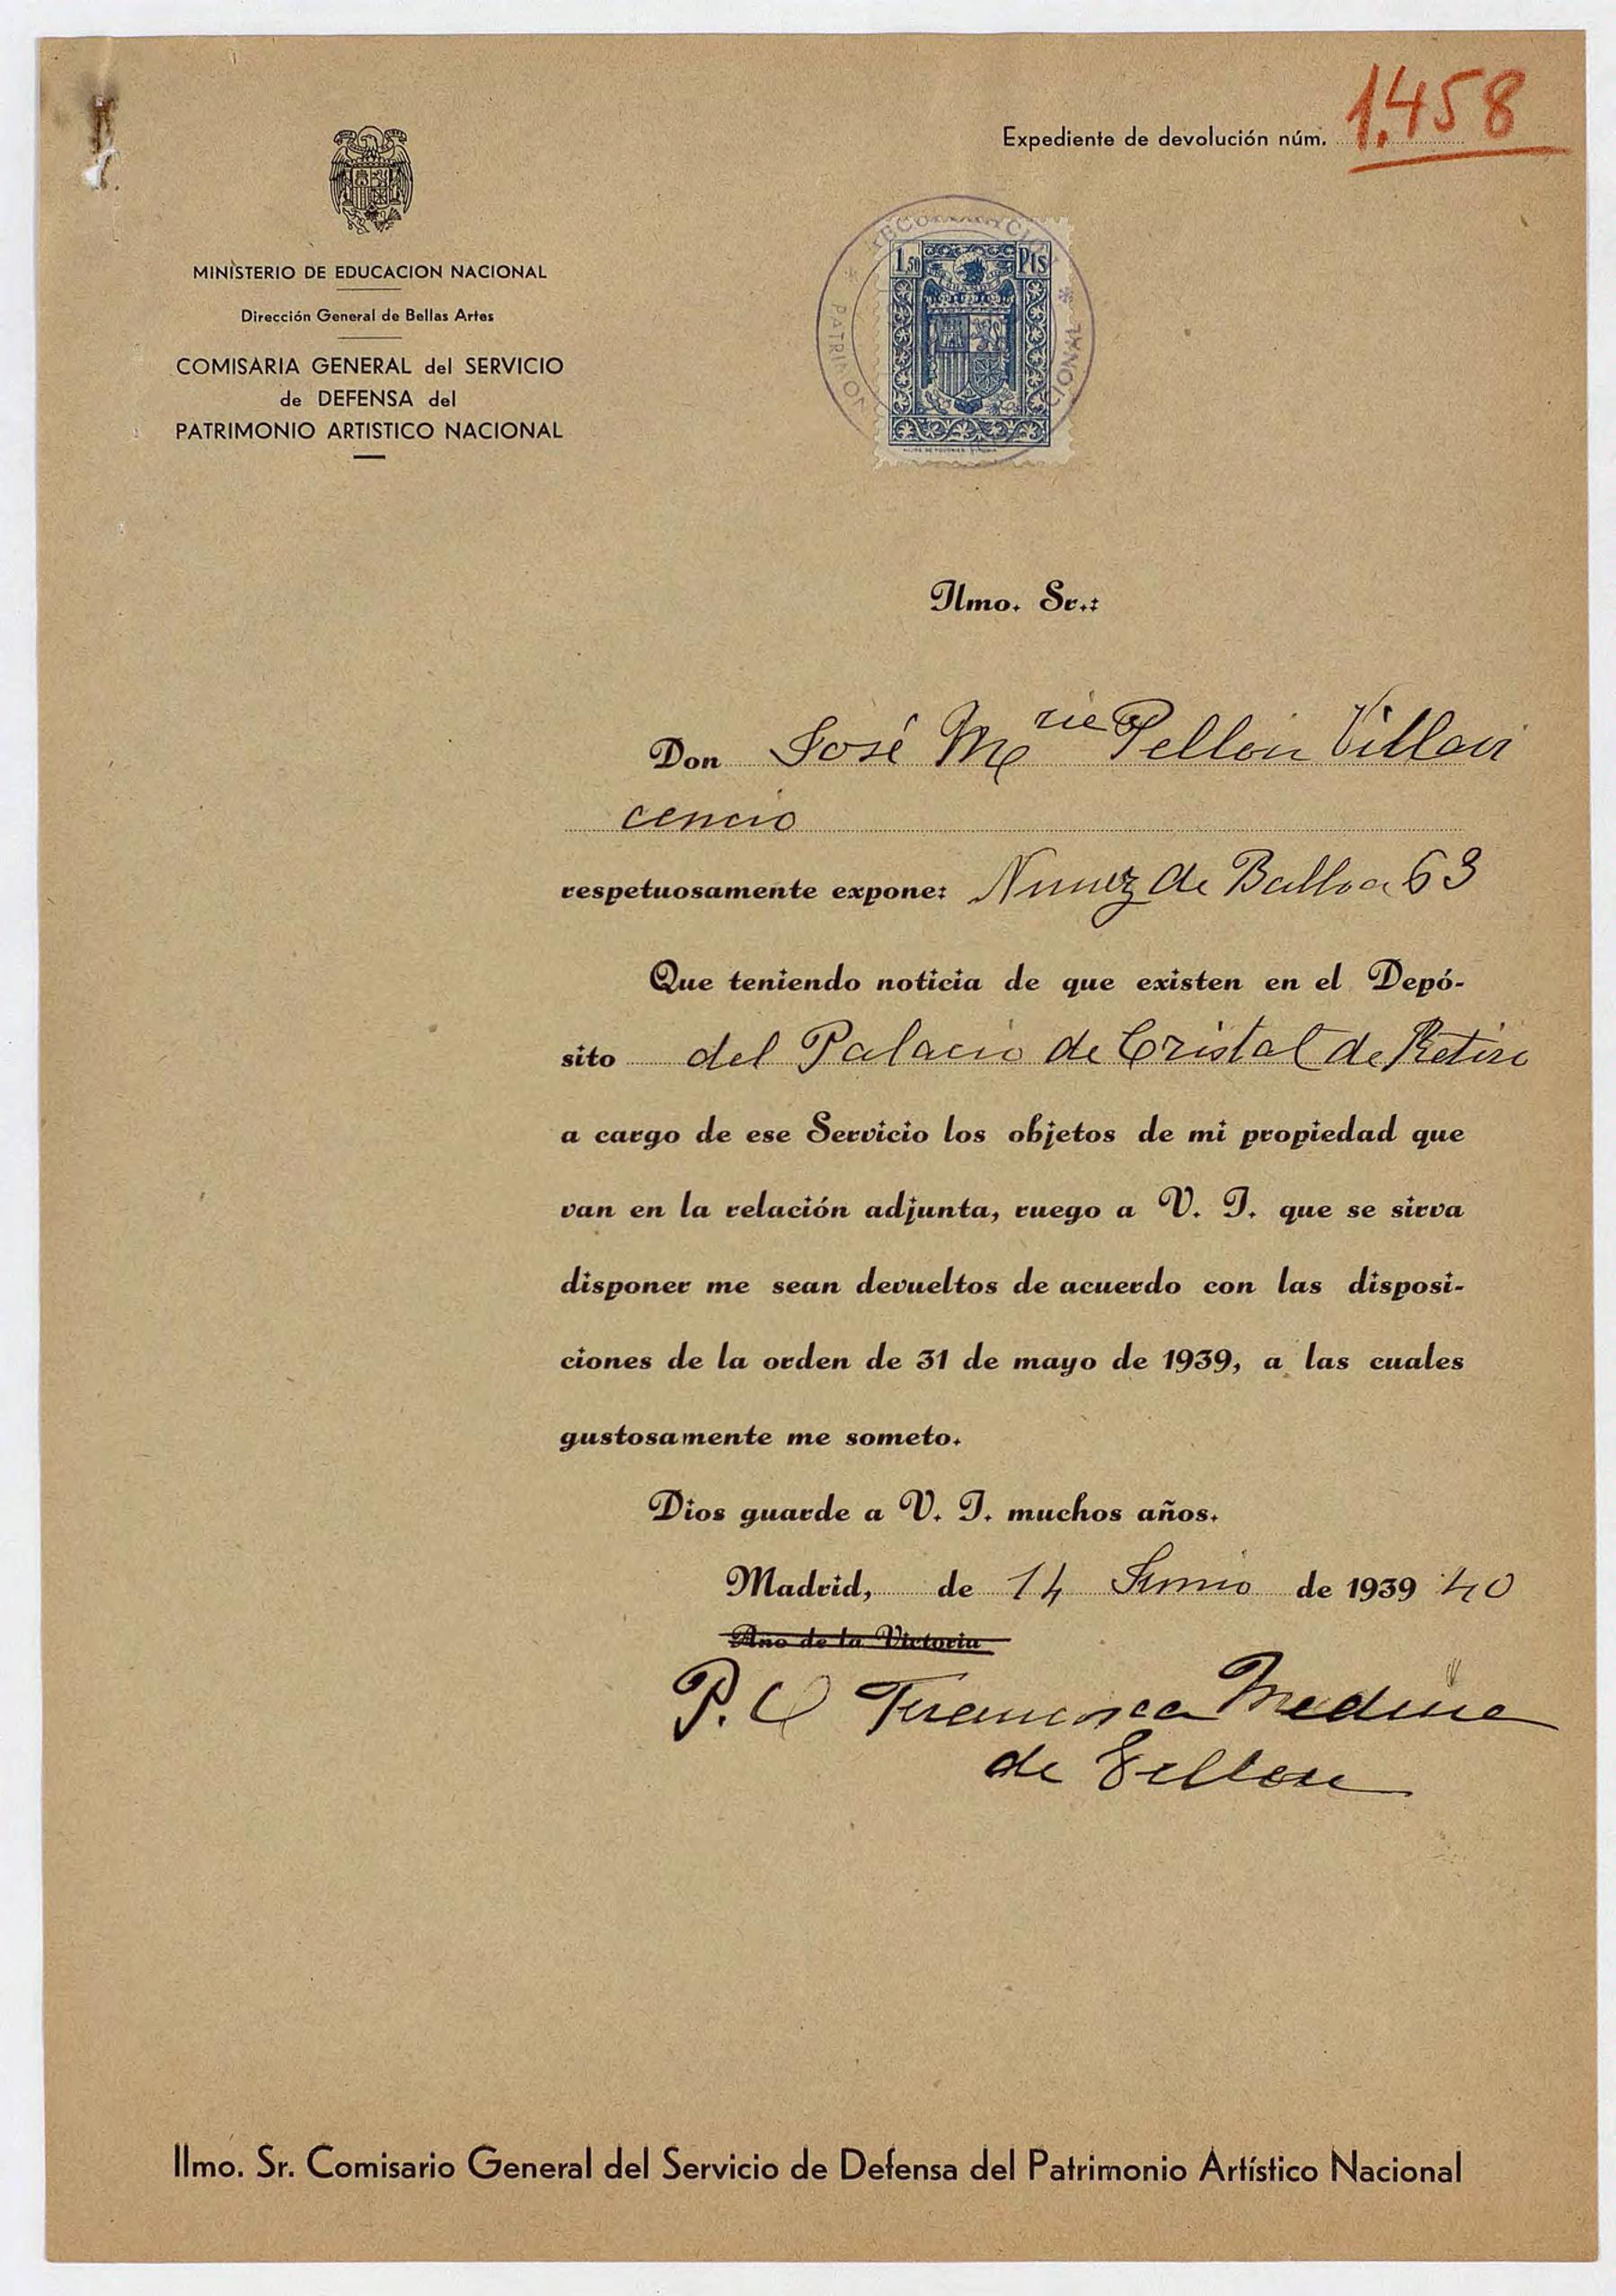 Expediente de devolución núm. 1.458
MINISTERIO DE EDUCACION NACIONAL
Dirección General de Bellas Artes
COMISARIA GENERAL del SERVICIO
de DEFENSA del
PATRIMONIO ARTISTICO NACIONAL
1,50 Pts
Ilmo. Sr.:
Don José Mª Pellon Villavi
cencio
respetuosamente expone: Nunez de Balboa 63
Que teniendo noticia de que existen en el Depó-
sito del Palacio de Cristal de Retiro
a cargo de ese Servicio los objetos de mi propiedad que
van en la relación adjunta, ruego a V. I. que se sirva
disponer me sean devueltos de acuerdo con las disposi-
ciones de la orden de 31 de mayo de 1939, a las cuales
gustosamente me someto.
Dios guarde a V. I. muchos años.
Madrid, de 14 Junio de 1939 40
Año de la Victoria
P. O Francisca Medina
de Pellon
Ilmo. Sr. Comisario General del Servicio de Defensa del Patrimonio Artístico Nacional